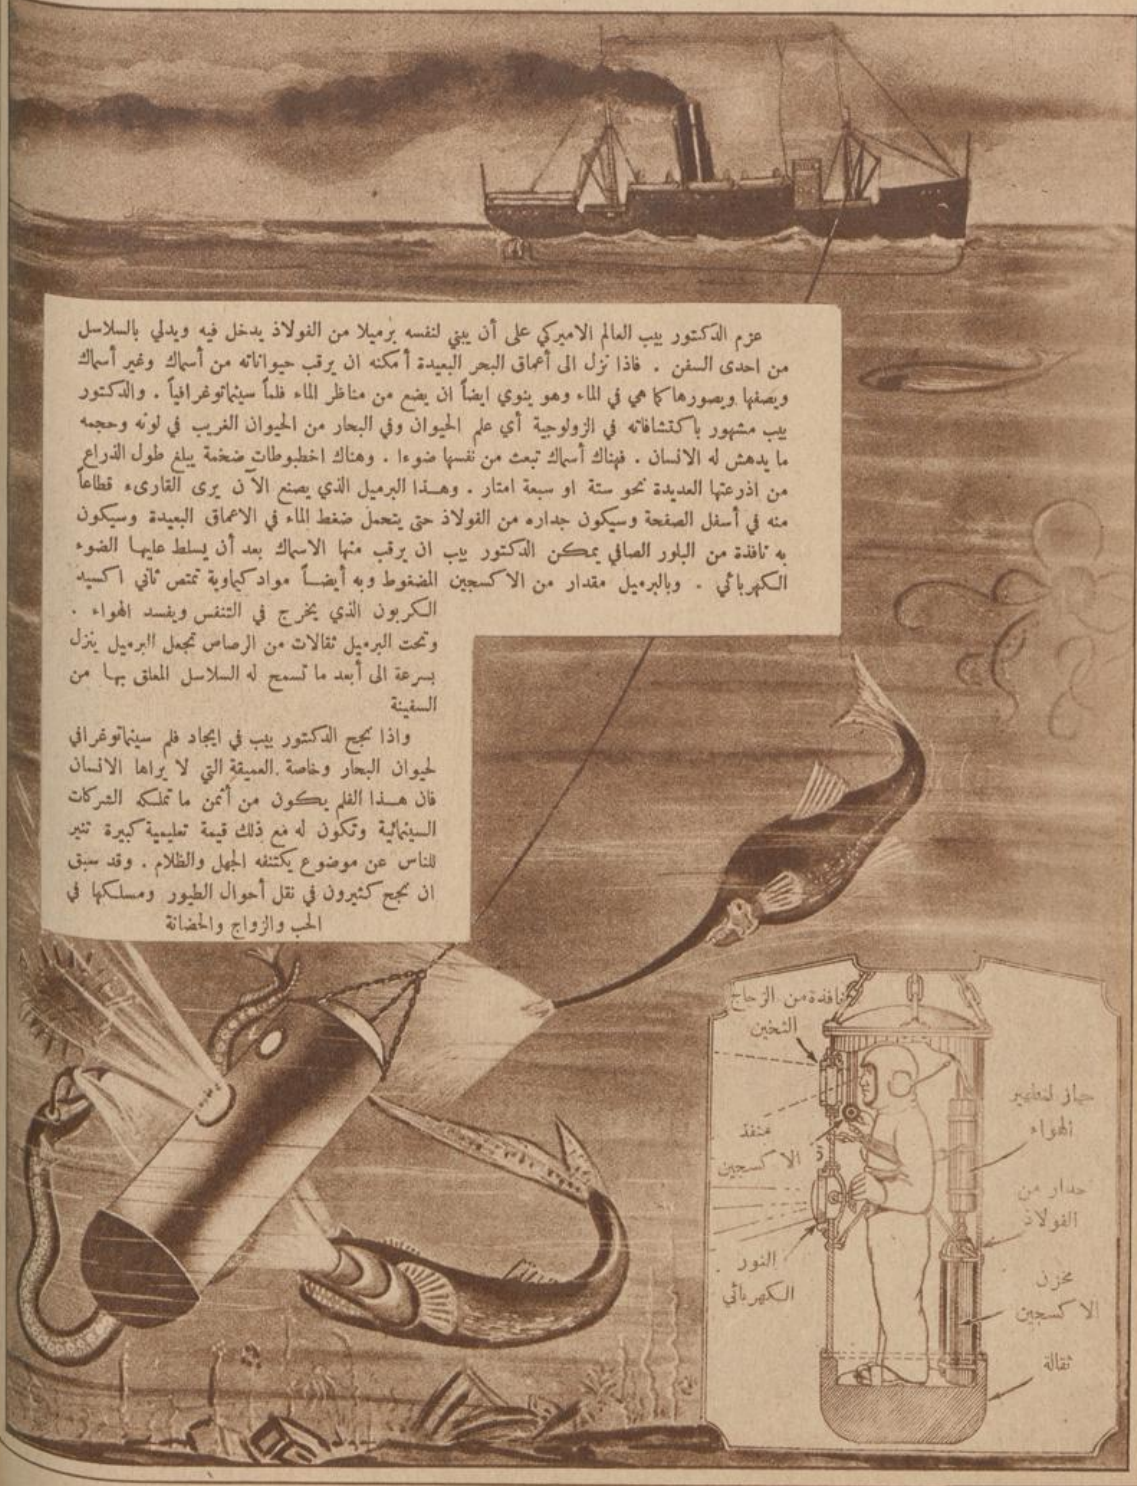 عزم الدكتور بيب العالم الاميركي على أن يبني لنفسه برميلا من الفولاذ يدخل فيه ويدلي بالسلاسل
من احدى السفن . فاذا نزل الى أعماق البحر البعيدة أمكنه ان يرقب حيواناته من أسماك وغير أسماك
ويصفها ويصورها كما هي في الماء وهو ينوي ايضاً ان يضع من مناظر الماء فلماً سينماتوغرافياً . والدكتور
بيب مشهور باكتشافاته في الزولوجية أي علم الحيوان وفي البحار من الحيوان الغريب في لونه وحجمه
ما يدهش له الانسان . فهناك أسماك تبعث من نفسها ضوءا . وهناك اخطبوطات ضخمة يبلغ طول الذراع
من اذرعتها العديدة نحو ستة او سبعة امتار . وهـذا البرميل الذي يصنع الآن يرى القارىء قطاعاً
منه في أسفل الصفحة وسيكون جداره من الفولاذ حتى يتحمل ضغط الماء في الاعماق البعيدة وسيكون
به نافذة من البلور الصافي يمكن الدكتور بيب ان يرقب منها الاسماك بعد أن يسلط عليها الضوء
الكهربائي . وبالبرميل مقدار من الاكسجين المضغوط وبه أيضاً مواد كيماوية تمتص ثاني اكسيد
الكربون الذي يخرج في التنفس ويفسد الهواء .
وتحت البرميل ثقالات من الرصاص تجعل البرميل ينزل
بسرعة الى أبعد ما تسمح له السلاسل المعلق بها من
السفينة
واذا نجح الدكتور بيب في ايجاد فلم سينماتوغرافي
لحيوان البحار وخاصة العميقة التي لا يراها الانسان
فان هـذا الفلم يكون من أثمن ما تملكه الشركات
السينمائية وتكون له مع ذلك قيمة تعليمية كبيرة تنير
للناس عن موضوع يكتنفه الجهل والظلام . وقد سبق
ان نجح كثيرون في نقل أحوال الطيور ومسلكها في
الحب والزواج والحضانة
نافذة من الزجاج
الثخين
جهاز لتطهير
الهواء
منفذ
الاكسجين
جدار من
الفولاذ
النور
الكهربائي
مخزن
الاكسجين
ثقالة